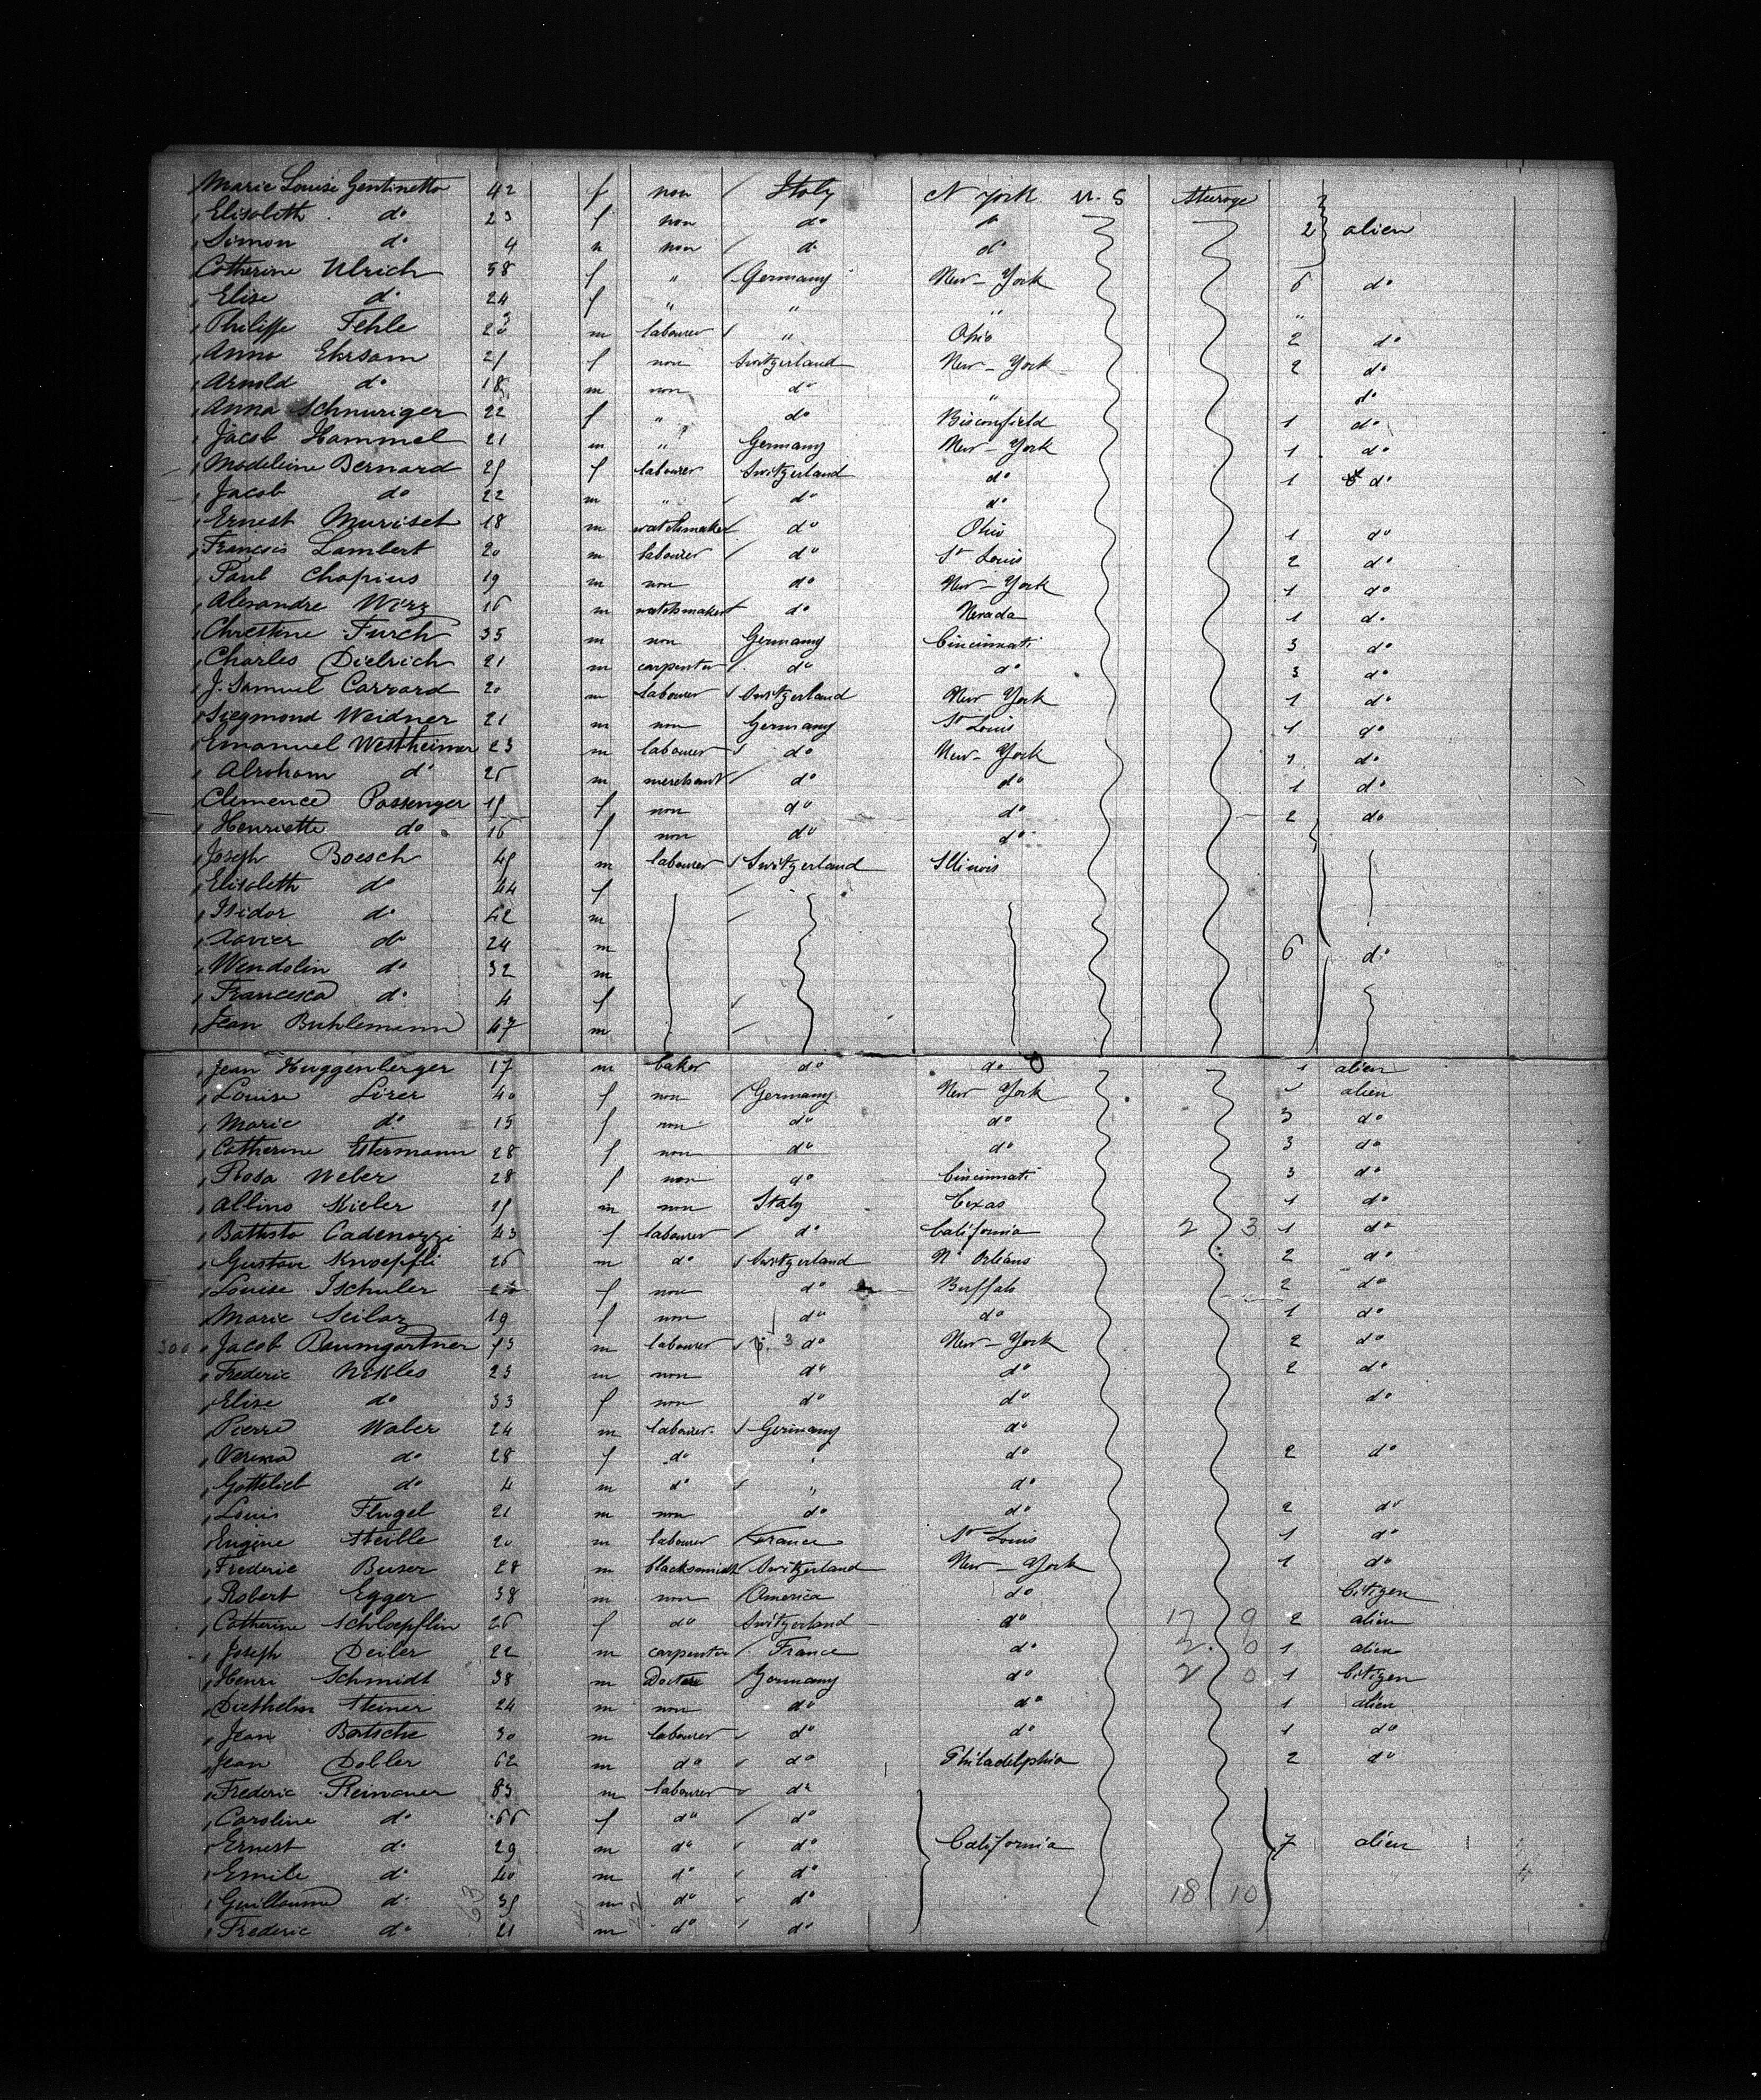 Marie Louise Gentinetta 42 f non Italy N York U. S Steerage
Elisabeth do 23 f non do do 2 alien
Simon do 4 non do do
Catherine Ulrich 58 f " Germany New-York 6 do
Elise do 24 f " " " "
Philippe Fehle m labourer " Ohio 2 do
Anna Ehrsam f non Switzerland New-York 2 do
Arnold do 18 m non do " do
Anna Schnuriger 22 f " do 1 do
Jacob Hammel 21 m " Germany New-York 1 do
Madeleine Bernard f labourer Switzerland do 1 do
Jacob do 22 m " do do
Ernest Muriset 18 m watchmaker do Ohio 1 do
François Lambert 20 m labourer do St Louis 2 do
Paul Chapius 19 m non do New-York 1 do
Alexandre Wirz 16 m watchmaker do Nevada 1 do
Christine Furch 35 m non Germany Cincinnati 3 do
Charles Dietrich 21 m carpenter do do 3 do
J. Samuel Carrard 20 m labourer Switzerland New York 1 do
Siegmond Weidner 21 m non Germany St Louis 1 do
Emanuel Westheimer 23 m labourer do New-York 1 do
Abraham do 26 m merchant do do 1 do
Clemence Passenger f non do do 2 do
Henriette do 16 f non do do
Joseph Boesch m labourer Switzerland Illinois
Elisabeth do 44 f
Isidor do 42 m
Xavier do 24 m 6 do
Wendolin do 32 m
Francesca do 4 f
Jean Buhlemann 47 m
Jean Huggenberger 17 m baker do do 1 alien
Louise Lirer 40 f non Germany New York alien
Marie do 15 f non do do 3 do
Catherine Estermann 28 f non do do 3 do
Rosa Weber 28 f non do Cincinnati 3 do
Albino Kieler m non Italy Texas 1 do
Battista Cadenazzi 43 f labourer do California 2 3 1 do
Gustave Knoepfli 26 m do Switzerland N. Orléans 2 do
Louise Tschuler f non do Buffalo 2 do
Marie Seilaz 19 f non do do 1 do
300 Jacob Baumgartner m labourer 3 do New-York 2 do
Frederic Nikles 23 m non do do 2 do
Elise do 33 f non do do do
Pierre Waber 24 m labourer Germany do
Verena do 28 f do do 2 do
Gottlieb do 4 m do " do
Louis Flugel 21 m non do do 2 do
Eugène Steible 20 m labourer France St Louis 1 do
Frederic Buser 28 m blacksmidt Switzerland New-York 1 do
Robert Egger 38 m non America do Citizen
Catherine Schloepflin 26 f do Switzerland do 17 9 2 alien
Joseph Deiler 22 m carpenter France do 2 0 1 alien
Henri Schmidt 38 m Doctor Germany do 2 0 1 Citizen
Diethelm Steiner 24 m non do do 1 alien
Jean Batsche 30 m labourer do do 1 do
Jean Dobler 62 m do do Philadelphia 2 do
Frederic Reinauer 83 m labourer do
Caroline do 66 f do do
Ernest do 29 m do do California 7 alien
Emile do 40 m do do
Guillaume do m do do 18 10
Frederic do 21 m do do
63 41 22